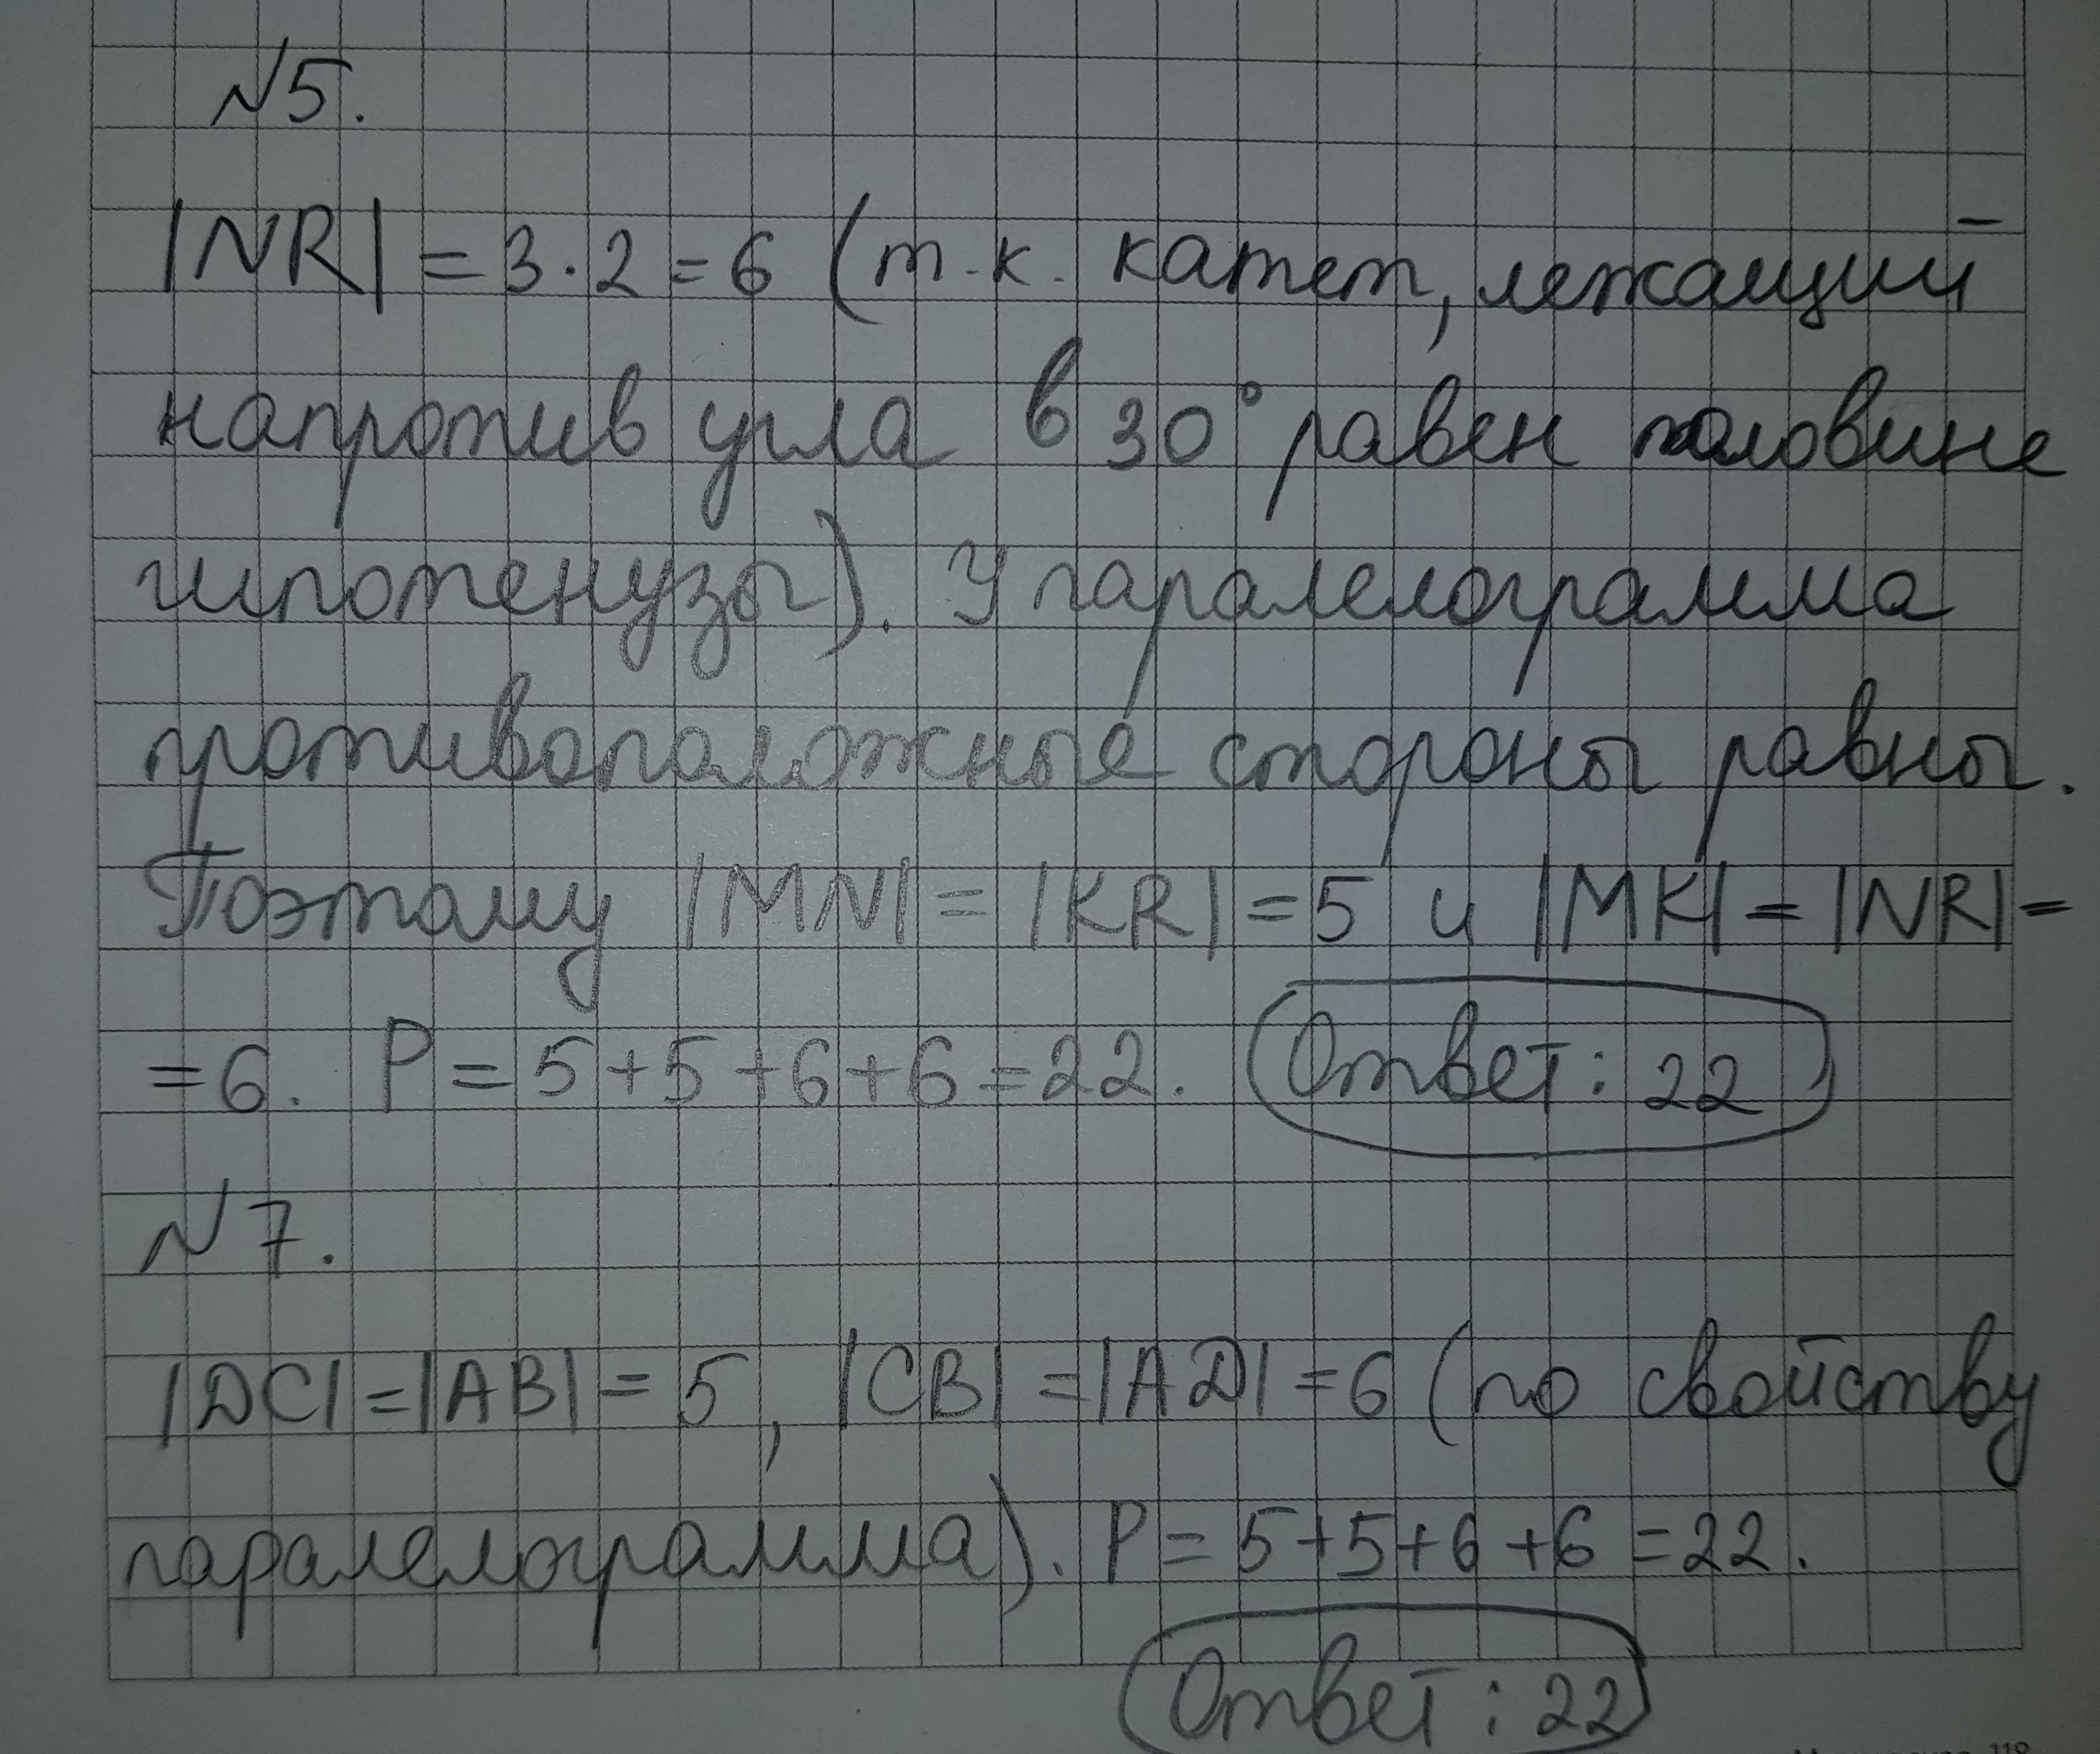 №5.
|NR| = 3·2 = 6 (т.к. катет, лежащий
напротив угла в 30° равен половине
гипотенузы). У паралелограмма
противоположные стороны равны.
Поэтому |MN| = |KR| = 5 и |MK| = |NR| =
= 6. P = 5+5+6+6 = 22. Ответ: 22
№7.
|DC| = |AB| = 5, |CB| = |AD| = 6 (по свойству
паралелограмма). P = 5+5+6+6 = 22.
Ответ: 22